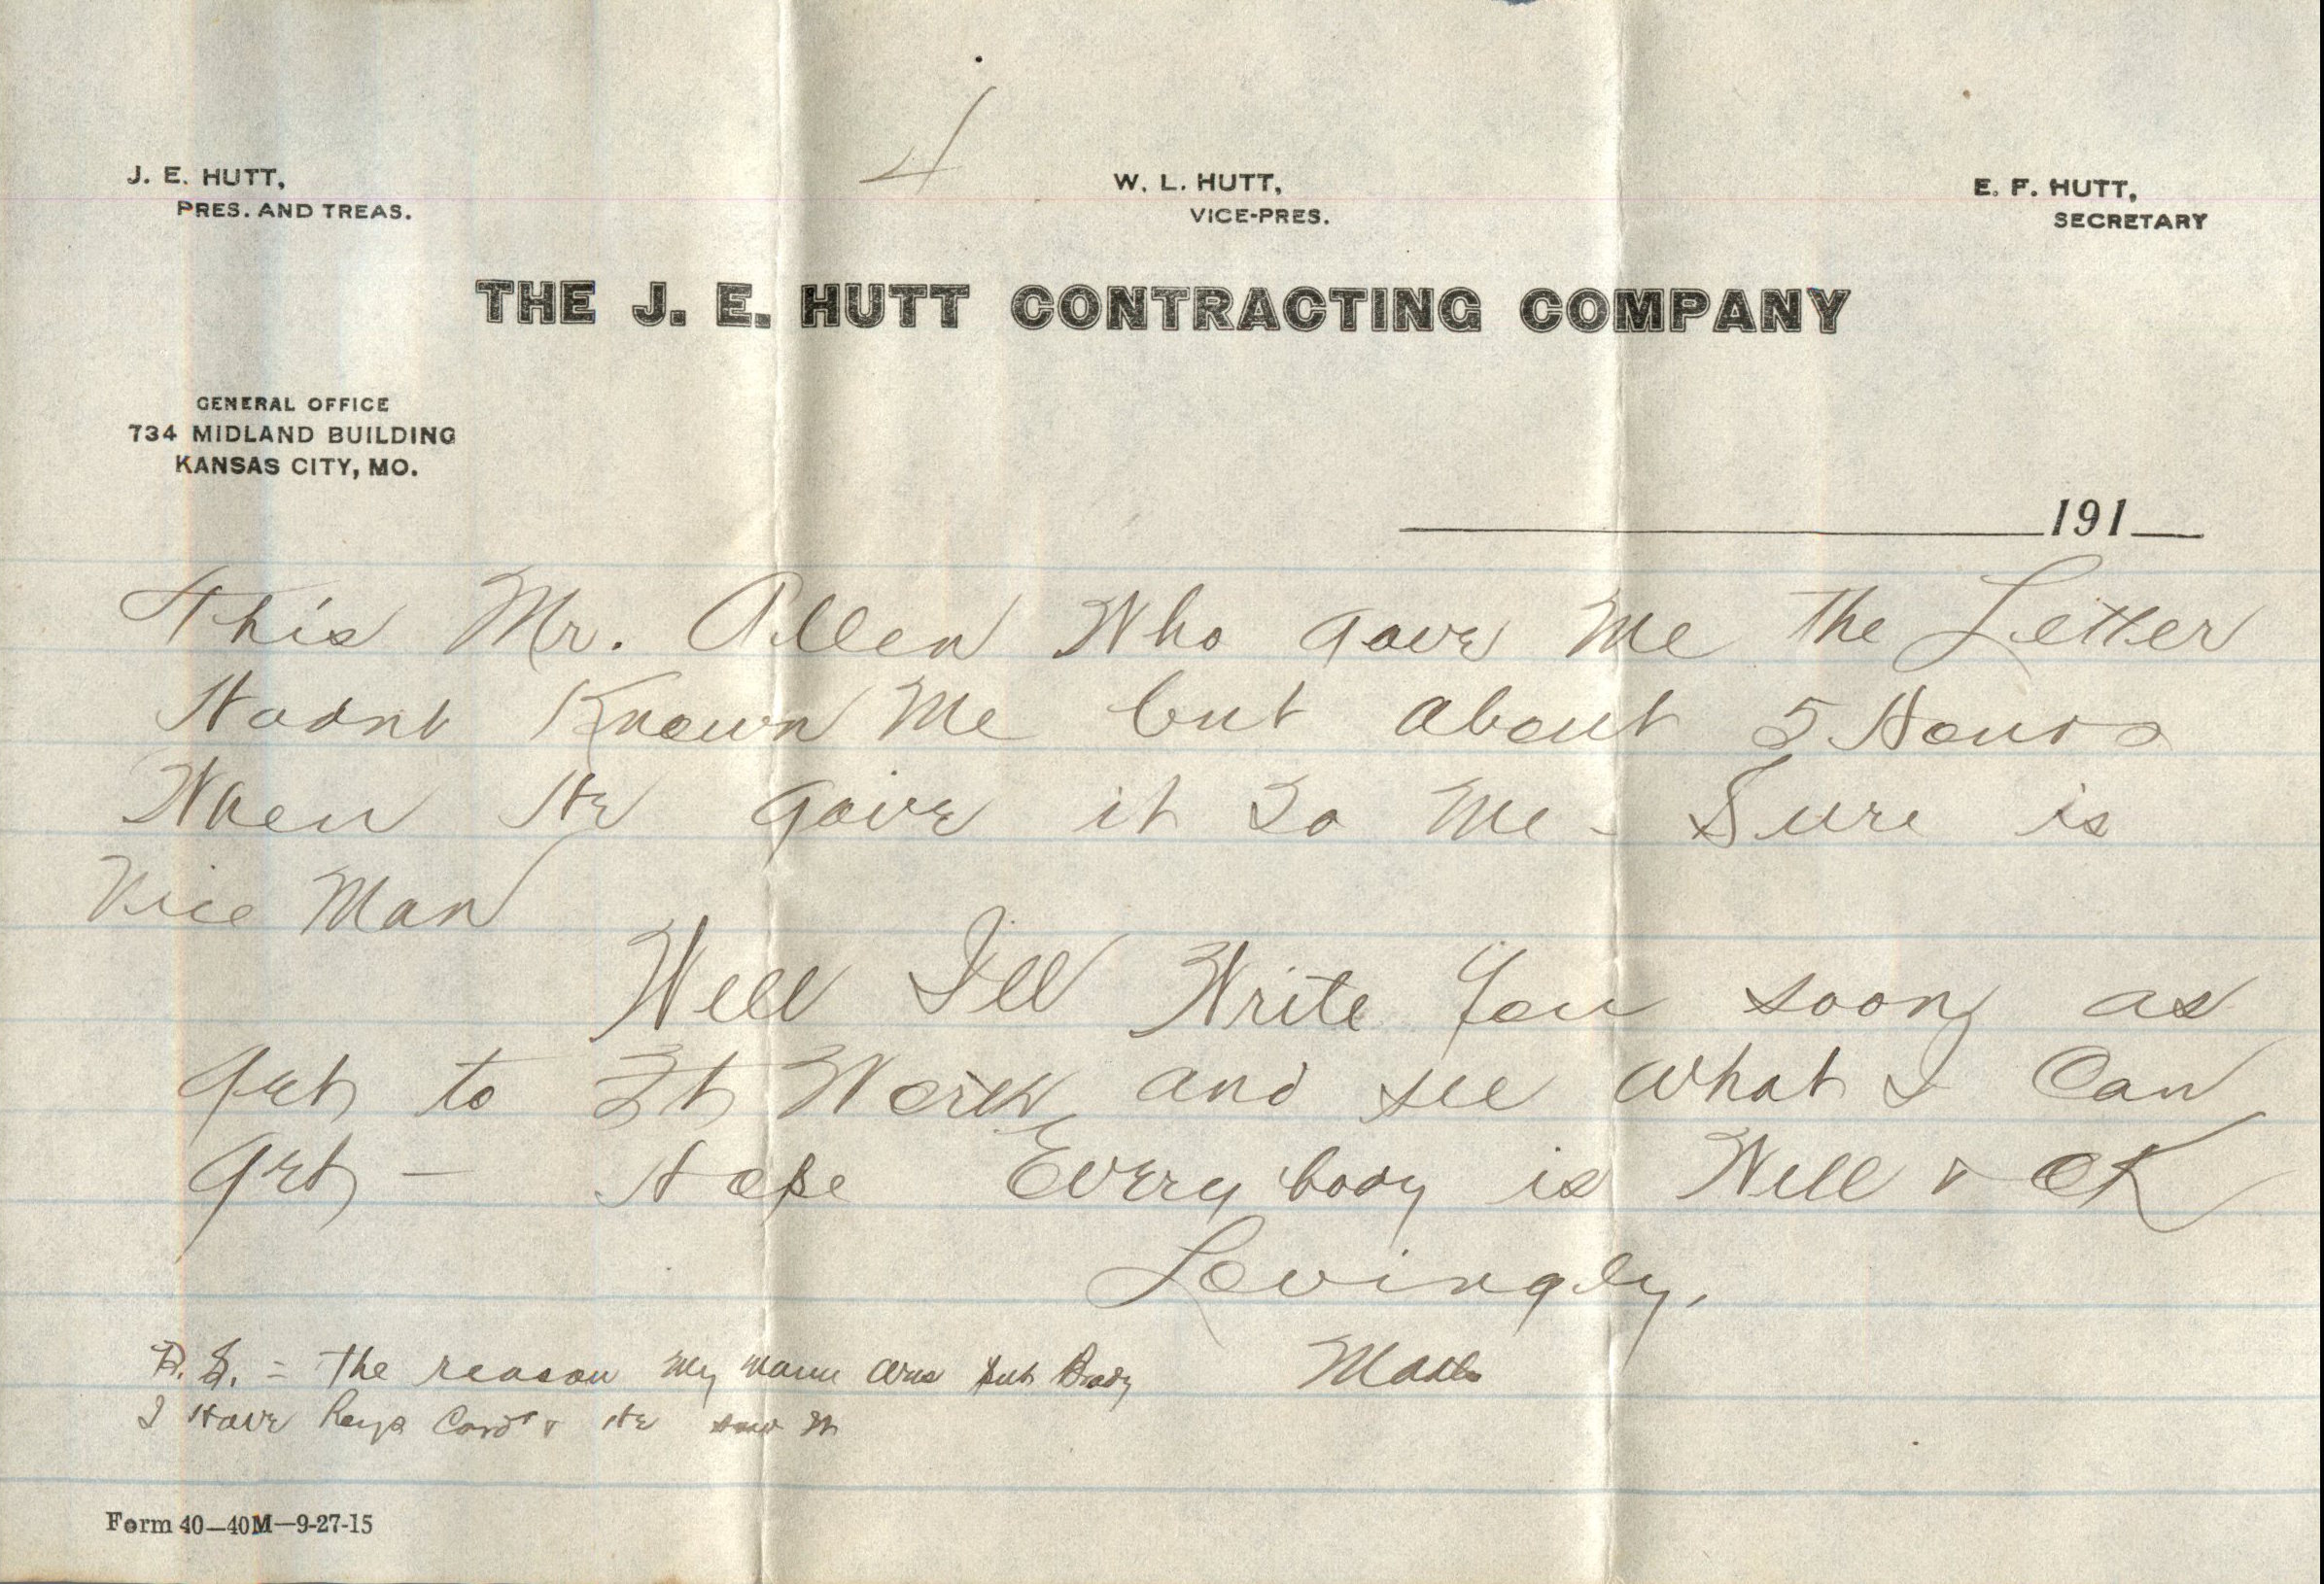 4
J. E. HUTT,
PRES. AND TREAS.
W. L. HUTT,
VICE-PRES.
E. F. HUTT,
SECRETARY
THE J. E. HUTT CONTRACTING COMPANY
GENERAL OFFICE
734 MIDLAND BUILDING
KANSAS CITY, MO.
191
This Mr. Allen Who gave Me the Letter
Hadnt Known Me but about 5 Hours
When He gave it to Me - Sure is
Nice Man
Well I'll Write You soon as
get to Ft Work and see what I Can
get - Hope Everybody is Well & OK
Lovingly,
P.S. - The reason My name was put Brady
I Have Rays Card & He saw it
Form 40—40M—9-27-15